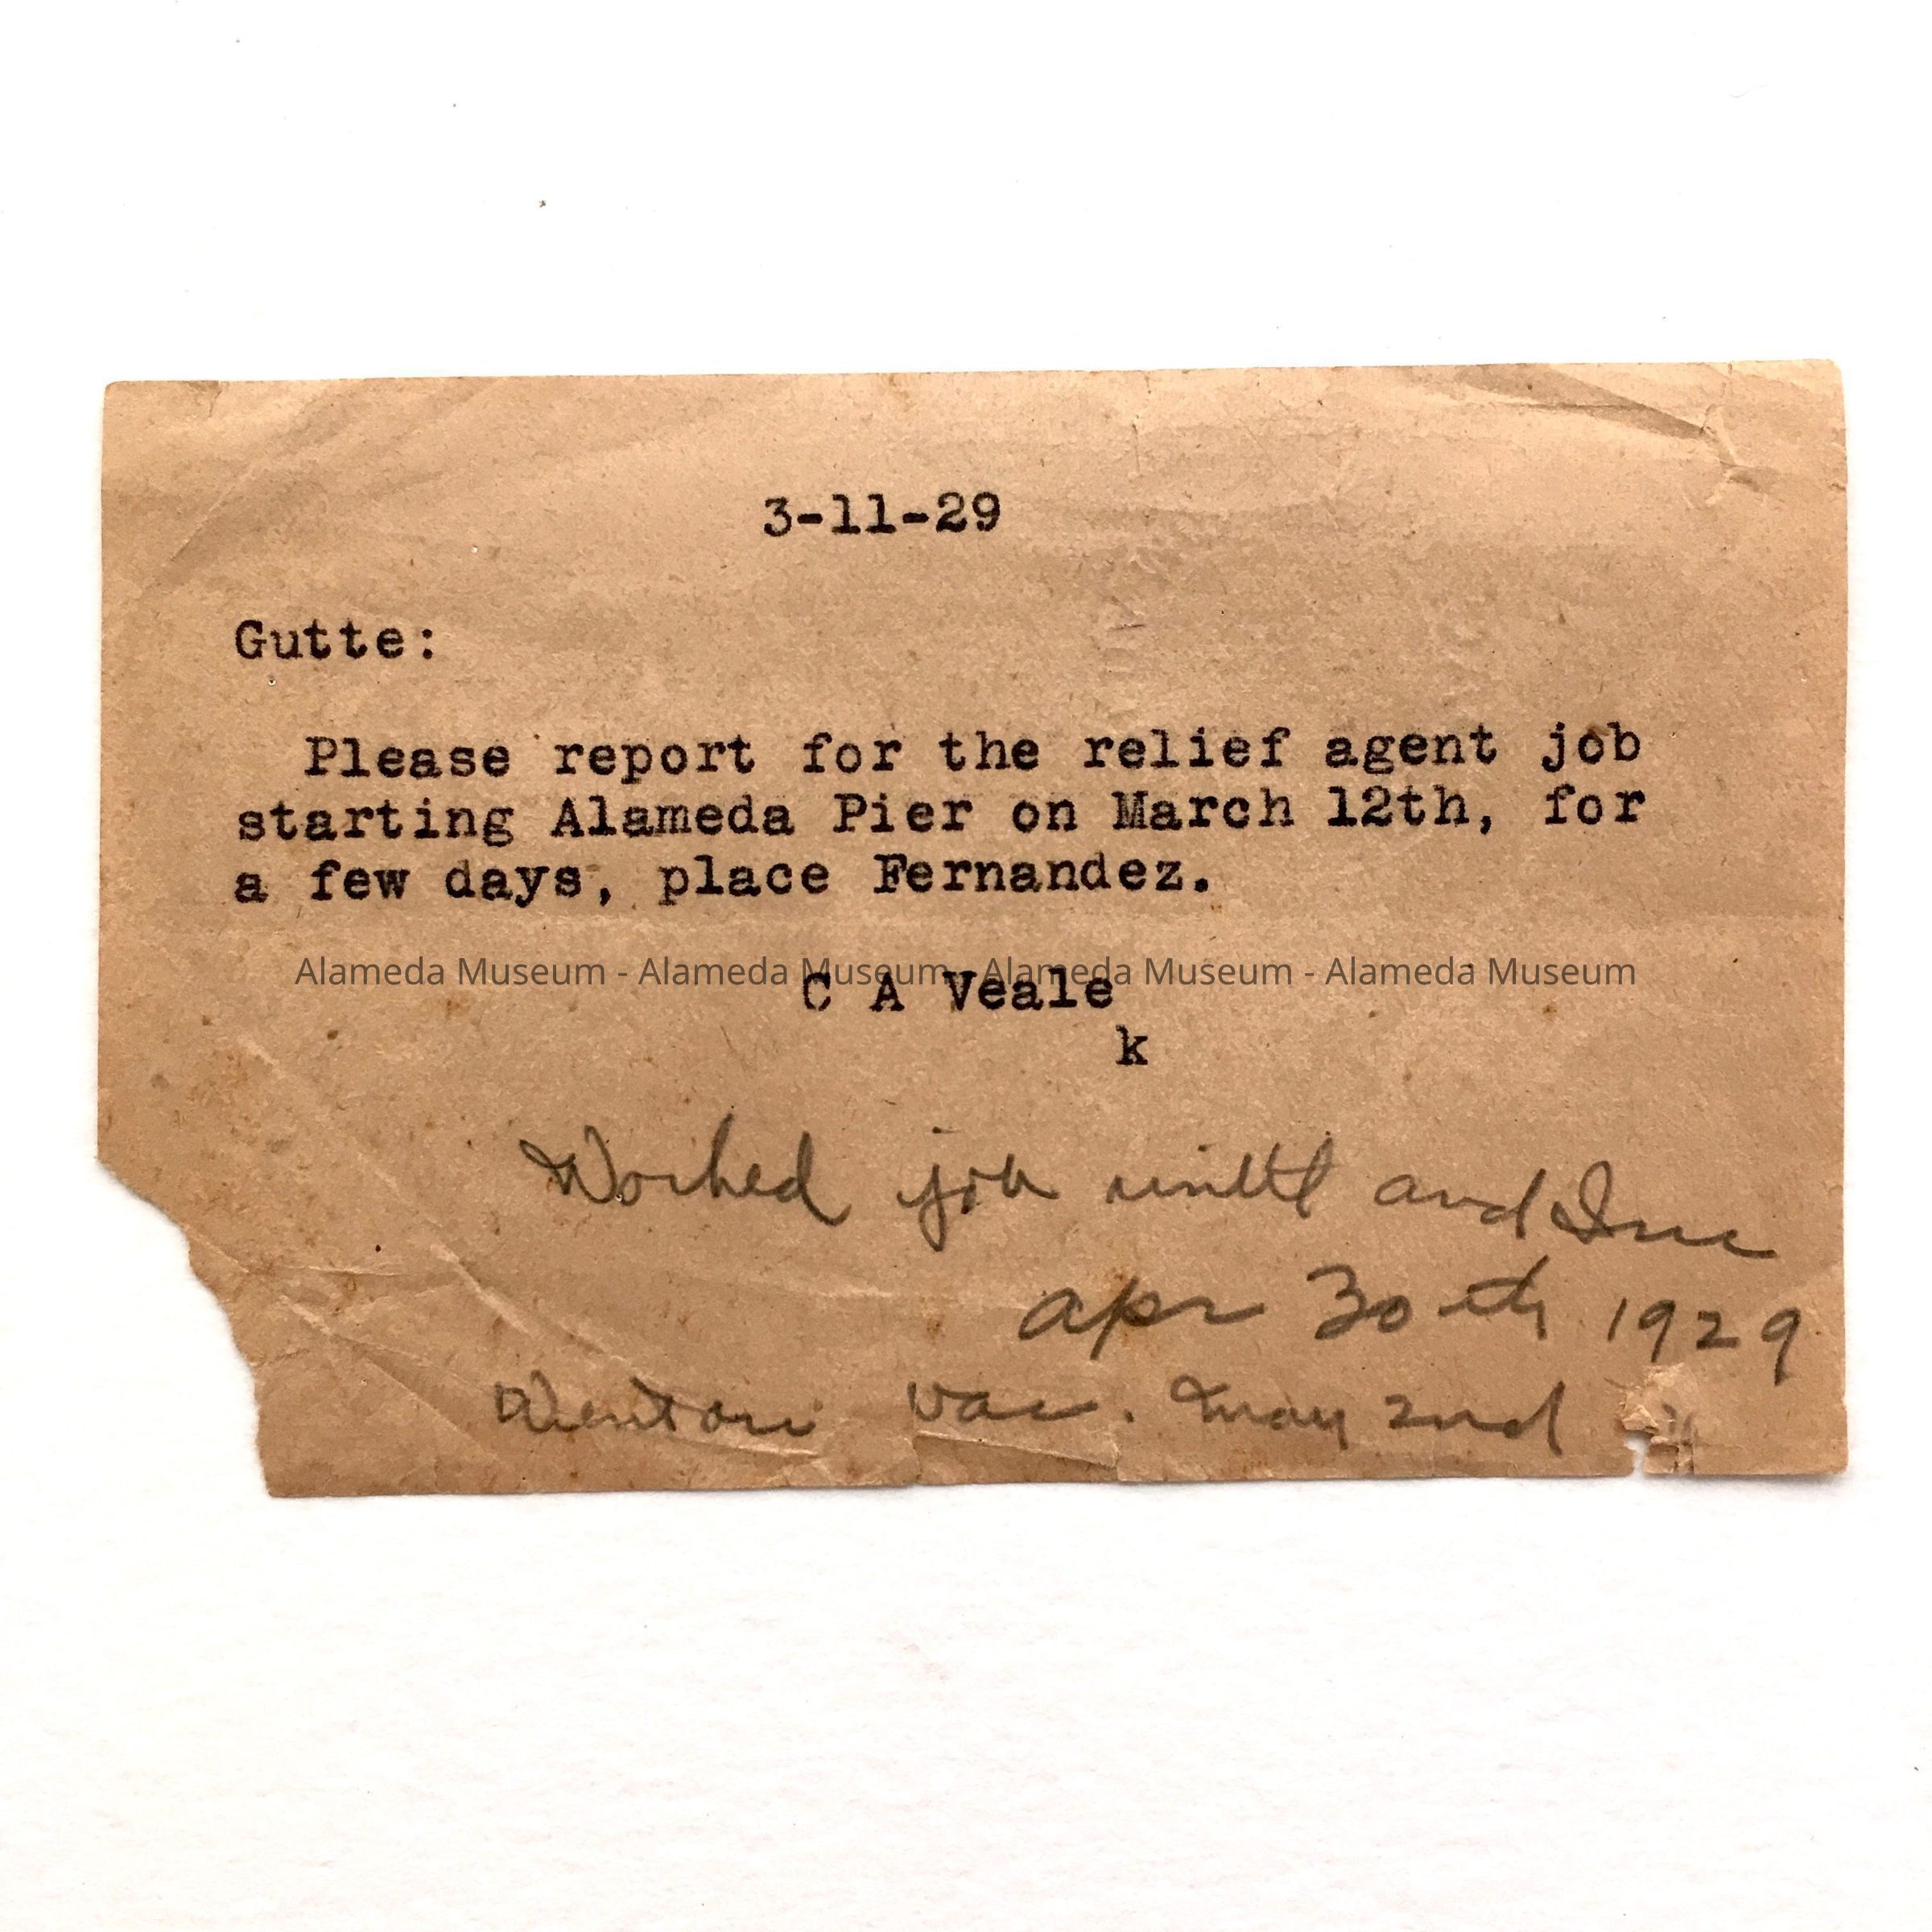 3-11-29
Gutte:
Please report for the relief agent job
starting Alameda Pier on March 12th, for
a few days, place Fernandez.
Alameda Museum - Alameda Museum - Alameda Museum - Alameda Museum
C A Veale
k
Worked job untill and Inc
apr 30th 1929
Went on vac. may 2nd